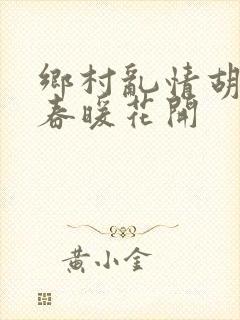 鄉村亂情胡
春暖花開
黃小金